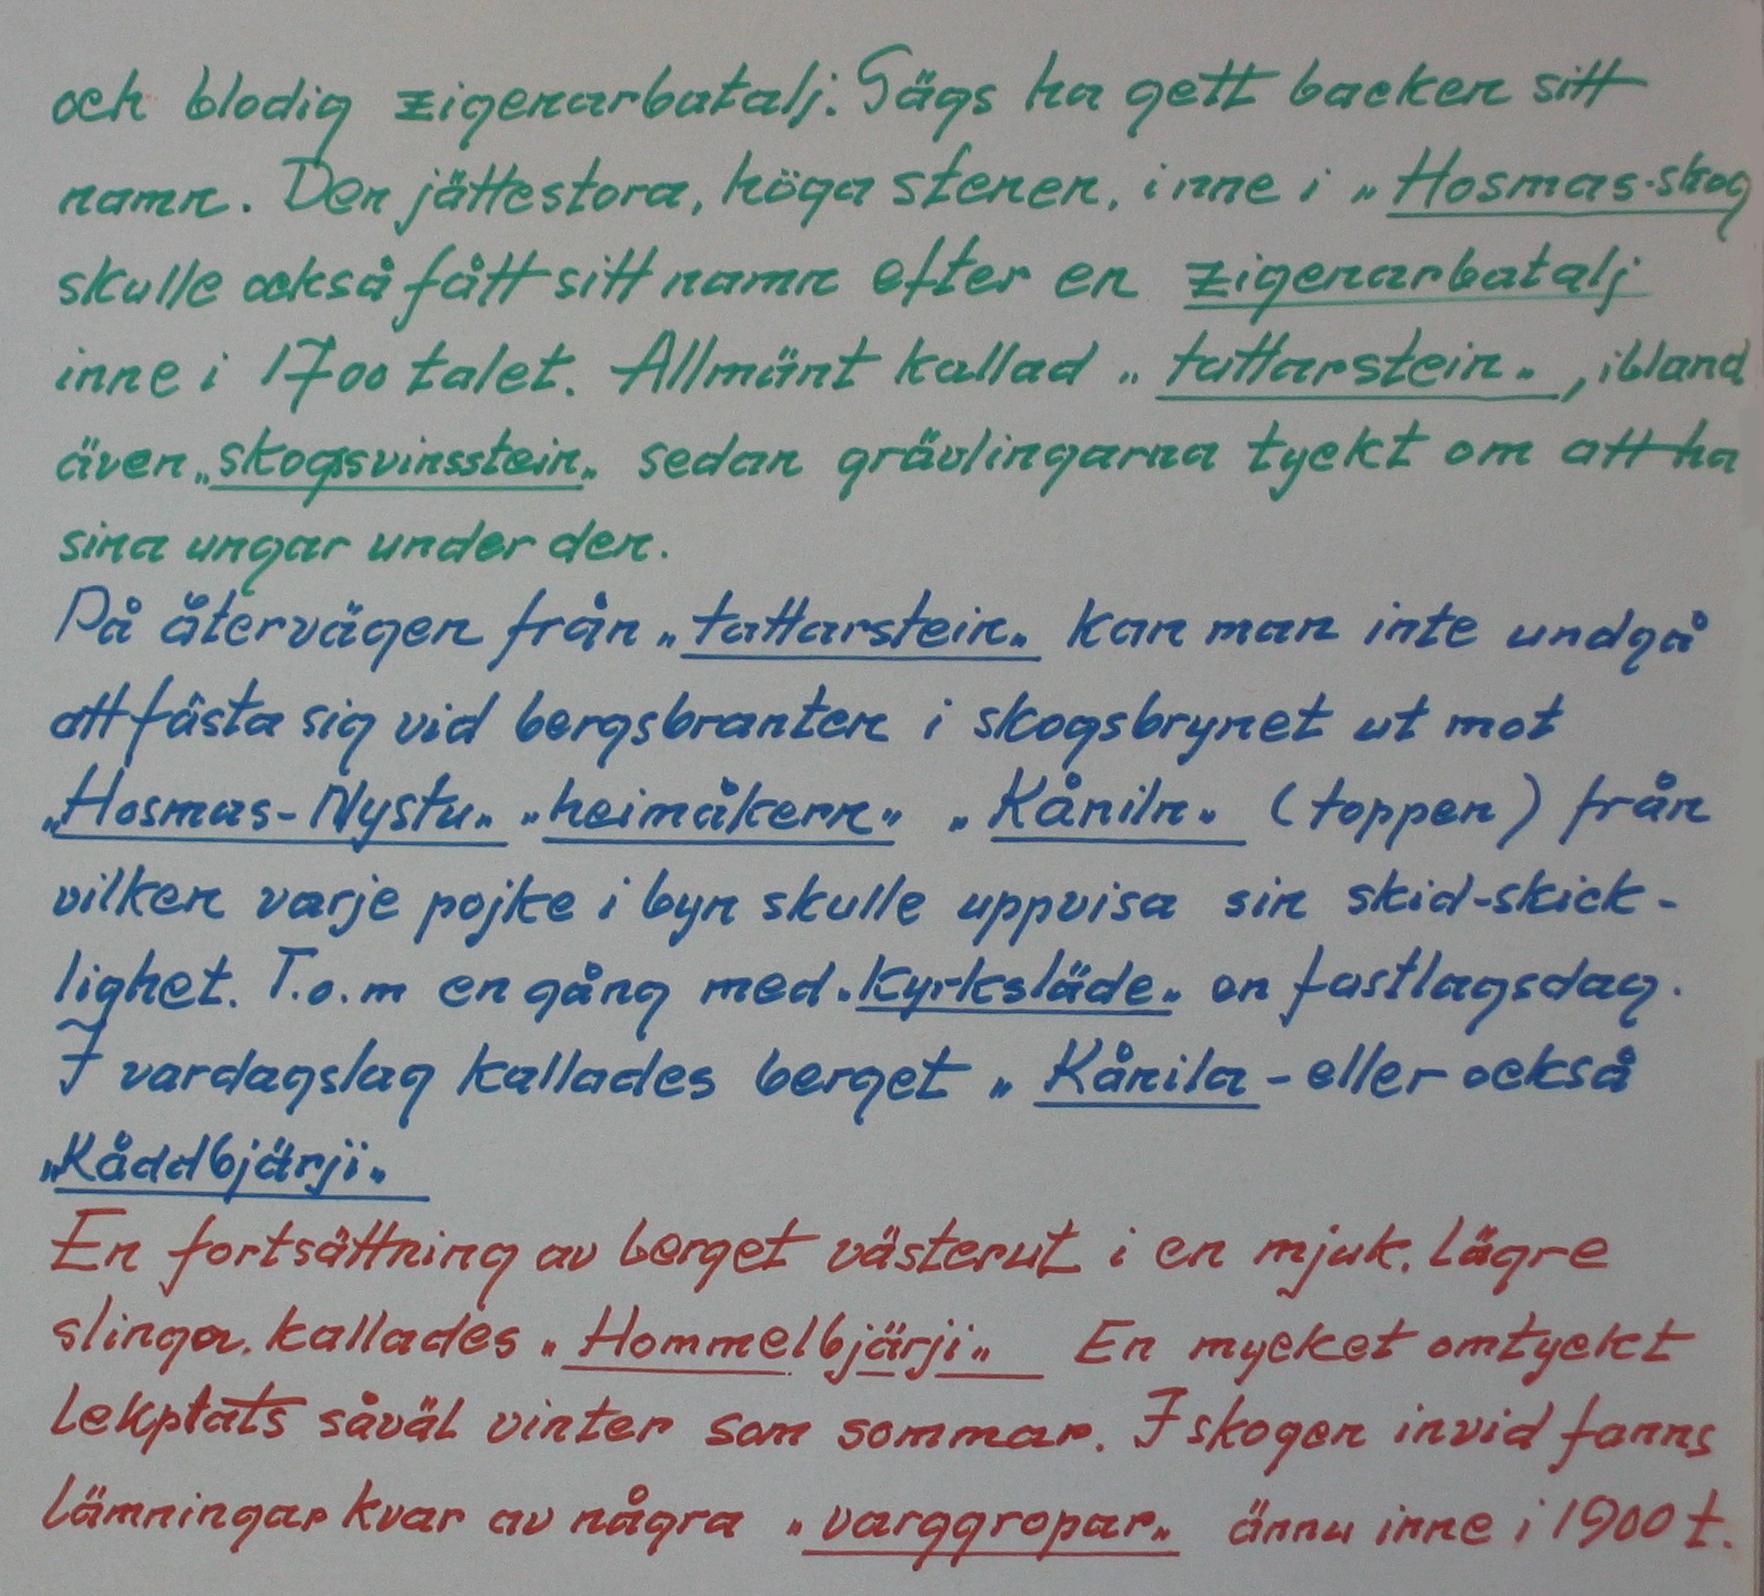 och blodig zigenarbatalj. Sägs ha gett backen sitt
namn. Den jättestora, höga stenen, inne i „Hosmas-skog
skulle också fått sitt namn efter en zigenarbatalj
inne i 1700 talet. Allmänt kallad „tattarstein„, ibland
även „skogsvinsstein„ sedan grävlingarna tyckt om att ha
sina ungar under den.
På återvägen från „tattarstein„ kan man inte undgå
att fästa sig vid bergsbranten i skogsbrynet ut mot
„Hosmas-Nystu„ „heimåkern„ „Kåniln„ (toppen) från
vilken varje pojke i byn skulle uppvisa sin skid-skick-
lighet. T.o.m en gång med „kyrksläde„ en fastlagsdag.
I vardagslag kallades berget „Kånila - eller också
„Kåddbjärji„
En fortsättning av berget västerut i en mjuk, lägre
slinga, kallades „Hommelbjärji„ En mycket omtyckt
lekplats såväl vinter som sommar. I skogen invid fanns
lämningar kvar av några „varggropar„ ännu inne i 1900 t.